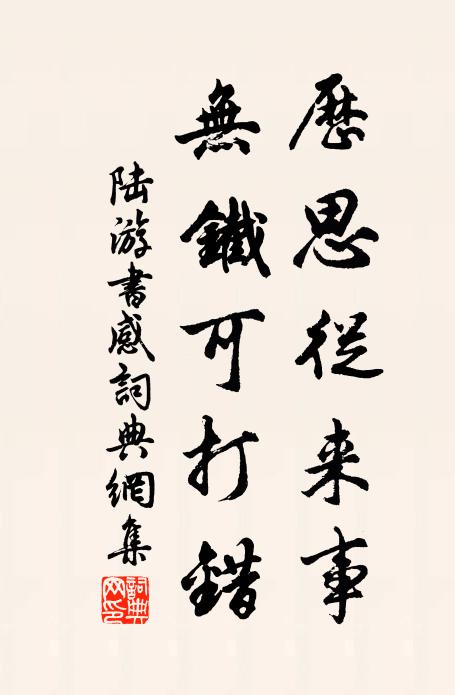 歷思從来事
無鐵可打錯
陸游書感詞典網集
詞典網印